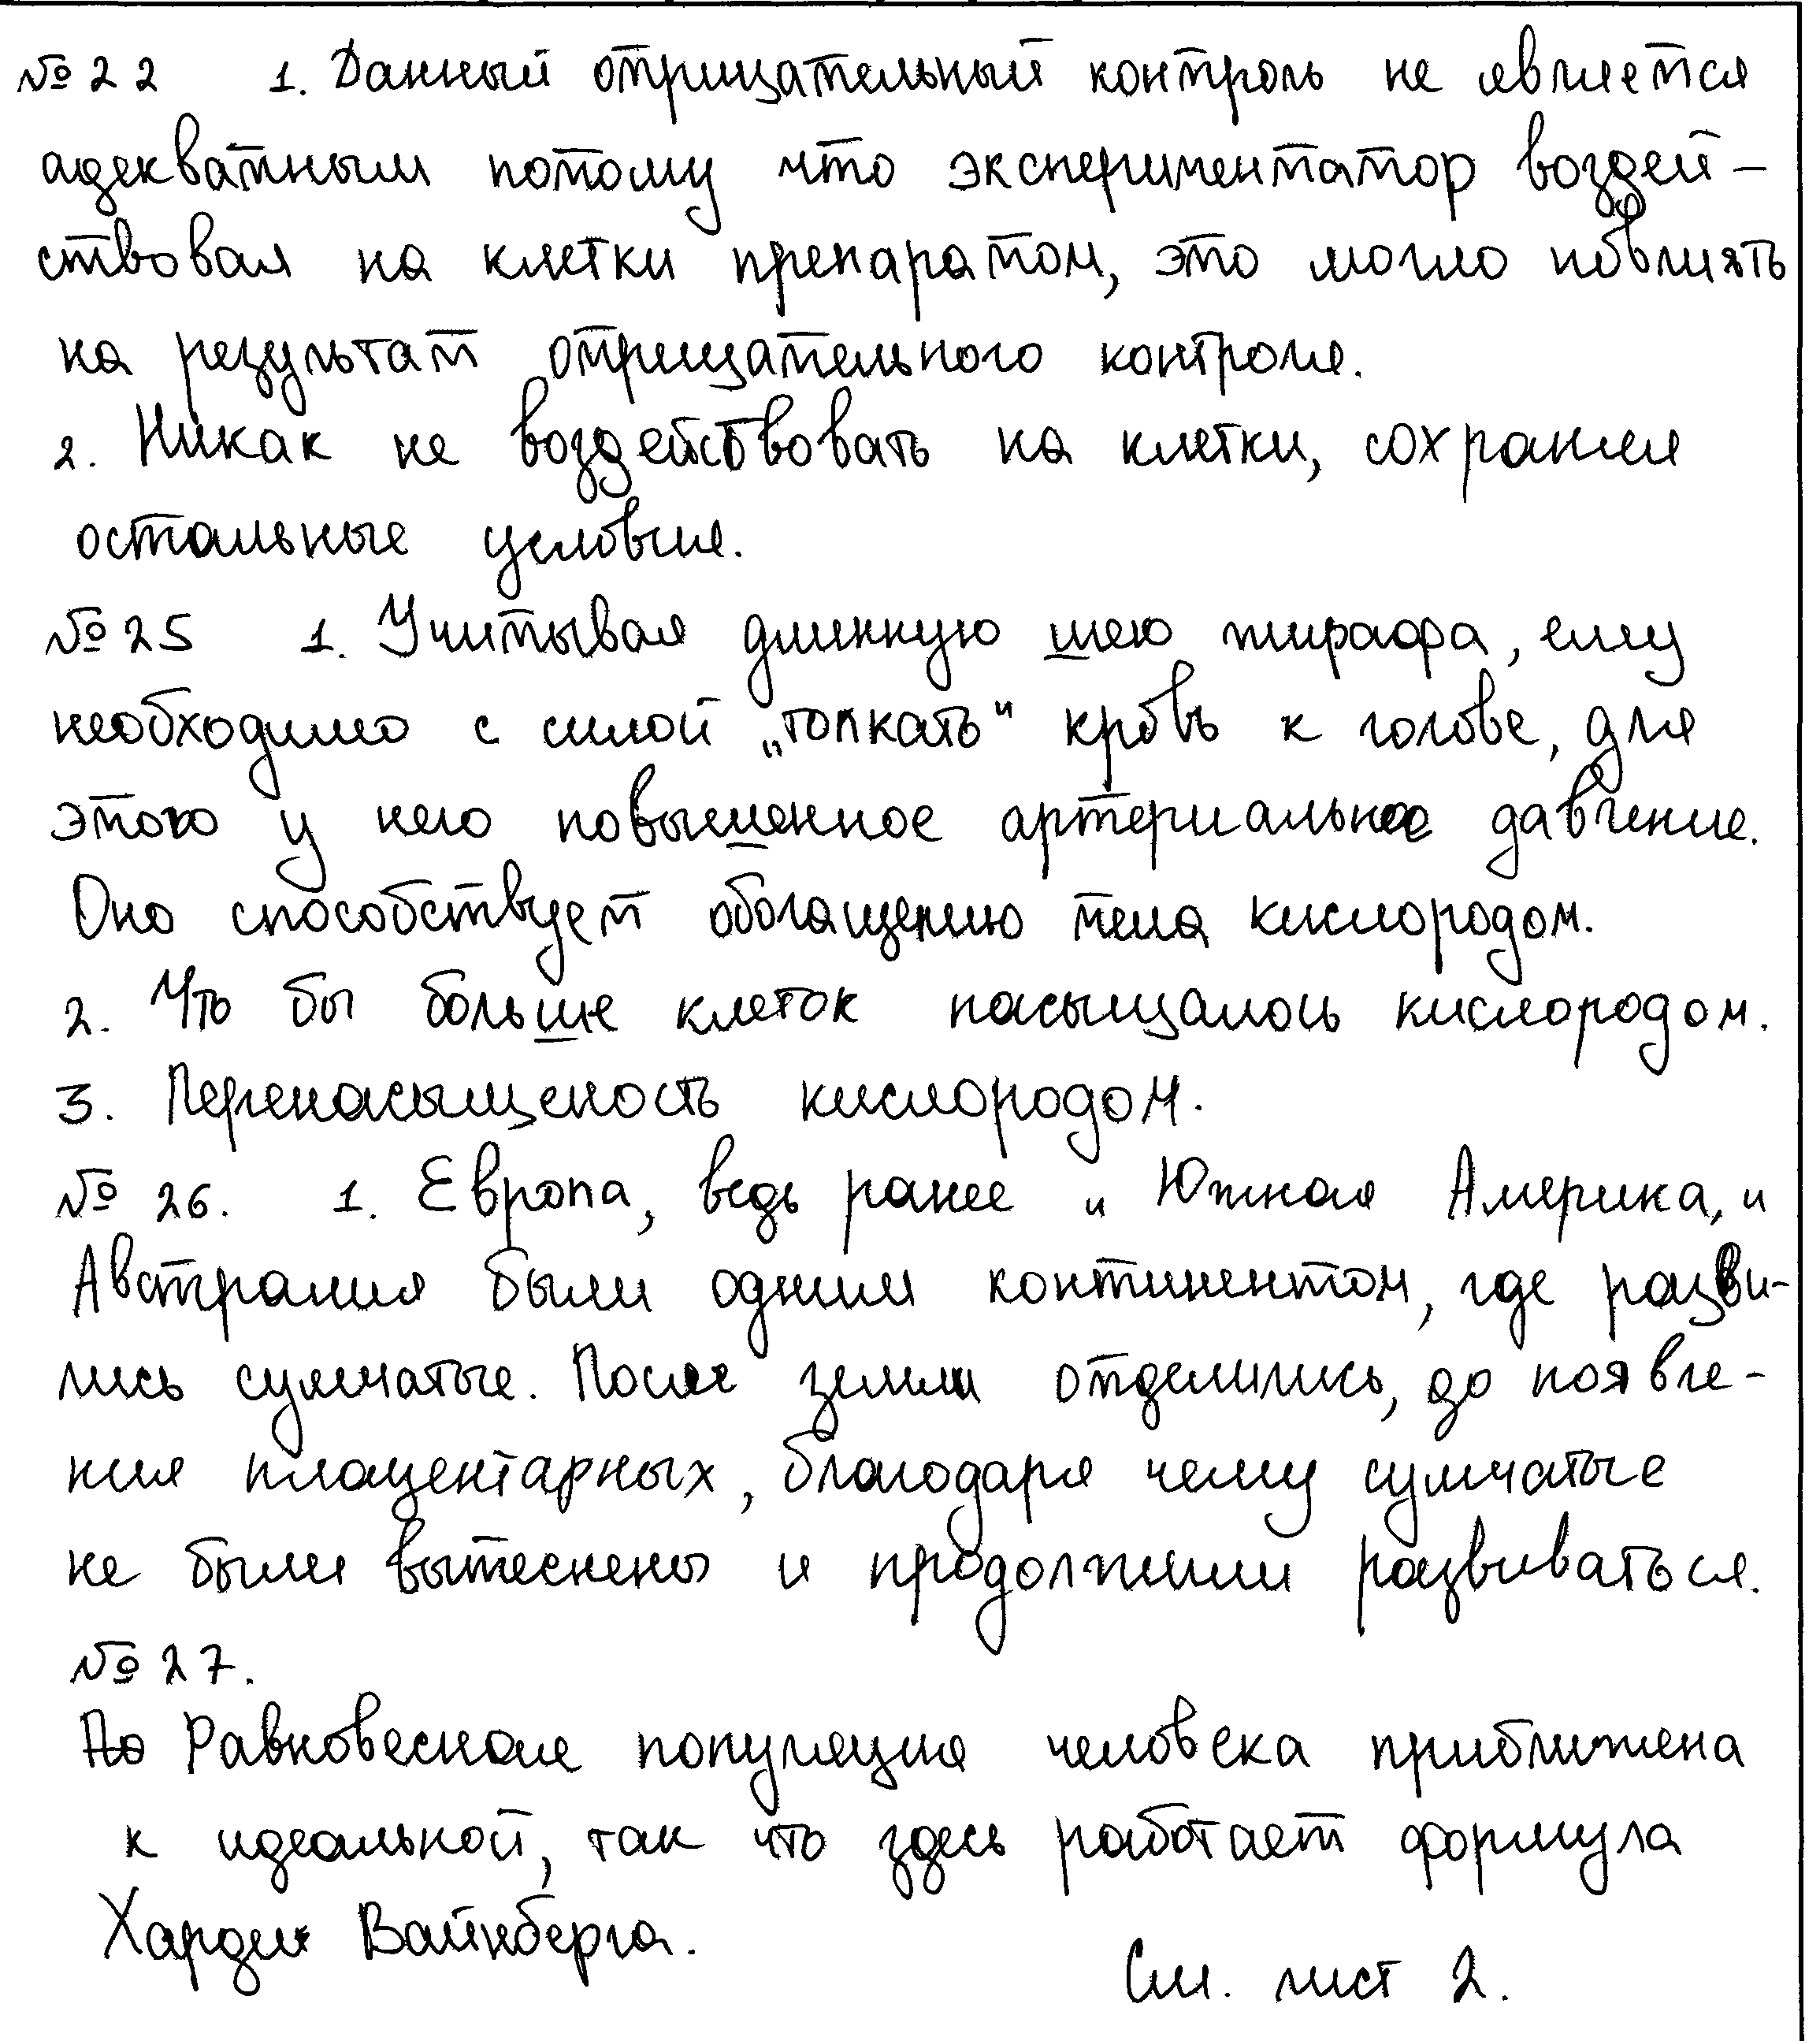 № 22 1. Данный отрицательный контроль не является
адекватным потому что экспериментатор воздей-
ствовал на клетки препаратом, это могло повлиять
на результат отрицательного контроля.
2. Никак не воздействовать на клетки, сохраняя
остальные условия.
№ 25 1. Учитывая длинную шею жирафа, ему
необходимо с силой „толкать" кровь к голове, для
этого у него повышенное артериальное давление.
Оно способствует обогащению тела кислородом.
2. Что бы больше клеток насыщалось кислородом.
3. Перенасыщеность кислородом.
№ 26. 1. Европа, ведь ранее и Южная Америка, и
Австралия были одним континентом, где разви-
лись сумчатые. После земли отделились, до появле-
ния плацентарных, благодаря чему сумчатые
не были вытеснены и продолжили развиваться.
№ 27.
По Равновесная популяция человека приближена
к идеальной, так что здесь работает формула
Харди Вайнберга.
См. лист 2.